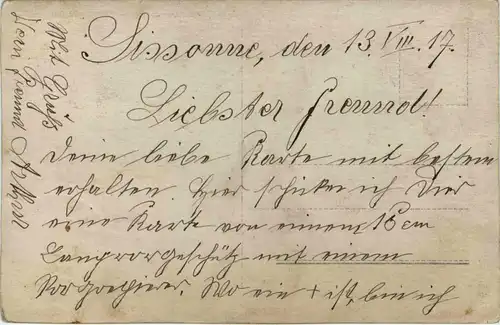 Sissonne, den 13.VIII.17.
Liebster Freund!
Deine liebe Karte mit bestem
erhalten. Hier schicke ich Dier
eine Karte von einem 15cm
Langrorgeschütz mit einem
Wo ein + ist, bin ich
Mit Gruß
Dein Freund Arthur